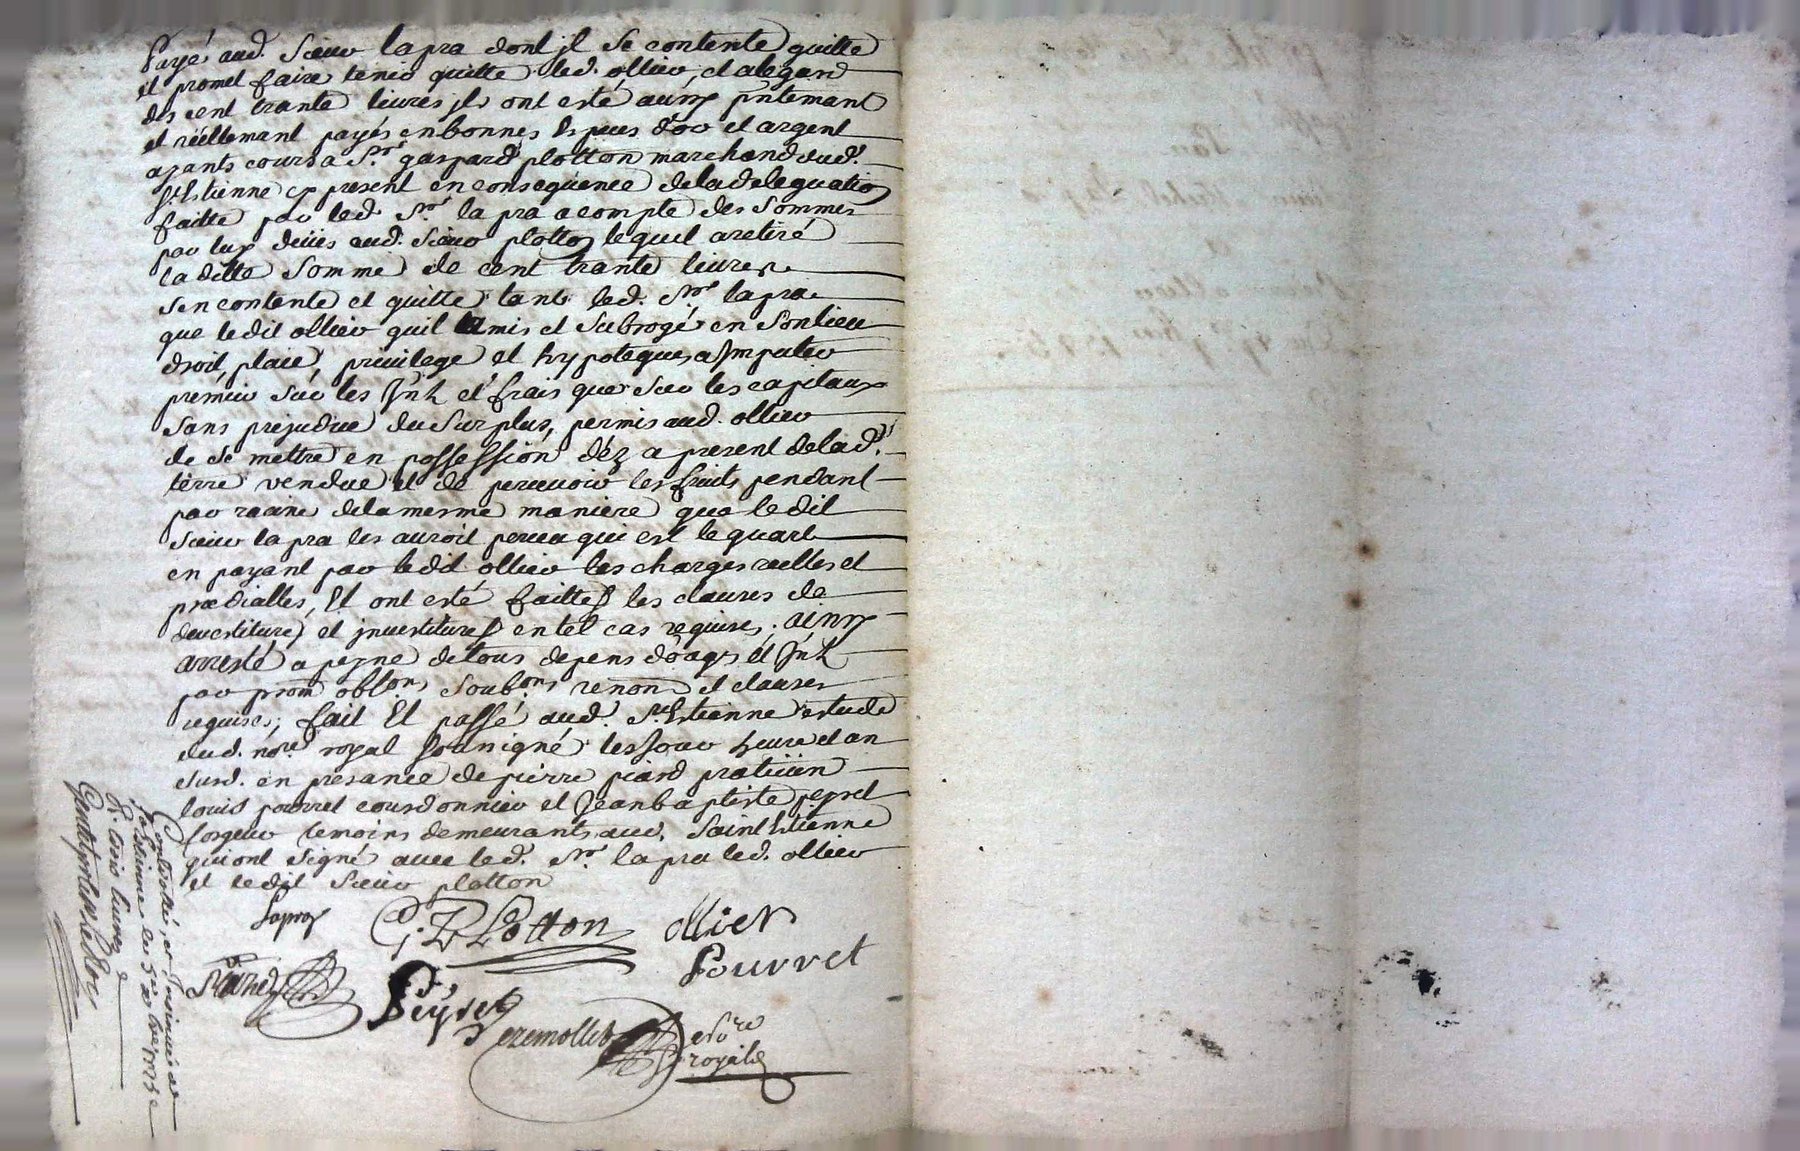 Payé aud. Sieur lapra dont jl Se contente quitte
et promet faire tenir quitte led. ollier, et alegard
des cent trante livres jls ont esté aussy pntemant
et réellemant payés en bonnes Especes d'or et argent
ayants cours a Sr. gaspard plotton marchand dud.
St. Estienne cy present en consequence de la deleguation
faitte par led. Sr. lapra a compte des Sommes
par luy deües aud. Sieur plotton lequel a retiré
la ditte Somme de cent trante livres
Sen contente et quitte tant led. Sr. lapra
que ledit ollier quil a mis et Subrogé en Son lieu
droit, place, privilege et hypoteques, a Jmputer
premier Sur les Jnts et frais que Sur les capitaux
Sans prejudice du Surplus, permis aud. ollier
de Se mettre en possession déz a present de lad.
terre vendue et de percevoir les fruits pendant
par racine de la mesme maniere que ledit
Sieur lapra les auroit perceu qui est le quart
en payant par ledit ollier les charges réelles et
prædialles, Et ont esté faittes les clauses de
devestiture et jnvestitures en tel cas requises. ainsy
arresté a peyne de tous depens doages et Jnts
par prom oblons Soubons renon et clauses
requises; fait Et passé aud. St. Estienne estude
dud. nore royal Sousigné les jour heure et an
Susd. en presance de pierre piard praticien
louis pourret courdonnier et Jean baptiste peyret
forgeur temoins demeurants aud. Saint Estienne
qui ont Signé avec led. Sr. lapra led. ollier
et ledit Sieur plotton
Lapra
G. Plotton
ollier
Piard
Peyret
Pourret
nore
royal
Controllé, et Jnsinué a
St Estienne le
livres